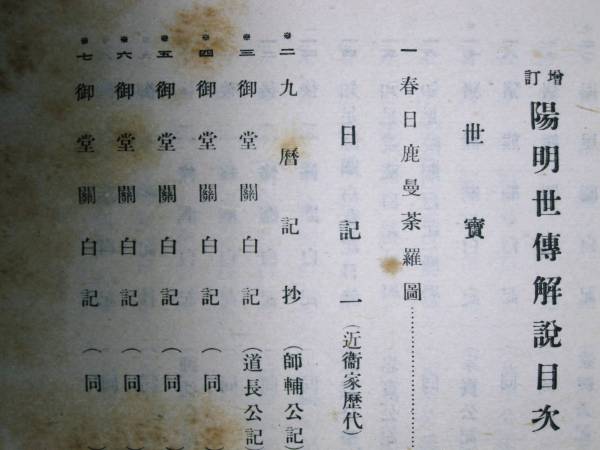 增訂 陽明世傳解說目次
世寶
一 春日鹿曼荼羅圖…………
日記一（近衞家歷代）
＊二 九曆記抄（師輔公記）
＊三 御堂關白記（道長公記）
＊四 御堂關白記（同
＊五 御堂關白記（同
＊六 御堂關白記（同
＊七 御堂關白記（同